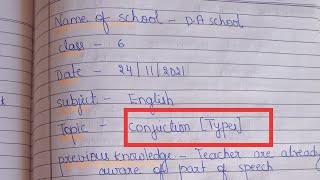 Name of school - D.A school
class - 6
Date - 24/11/2021
subject - English
Topic - Conjuction [Types]
previous knowledge - Teacher are already
aware of part of speech